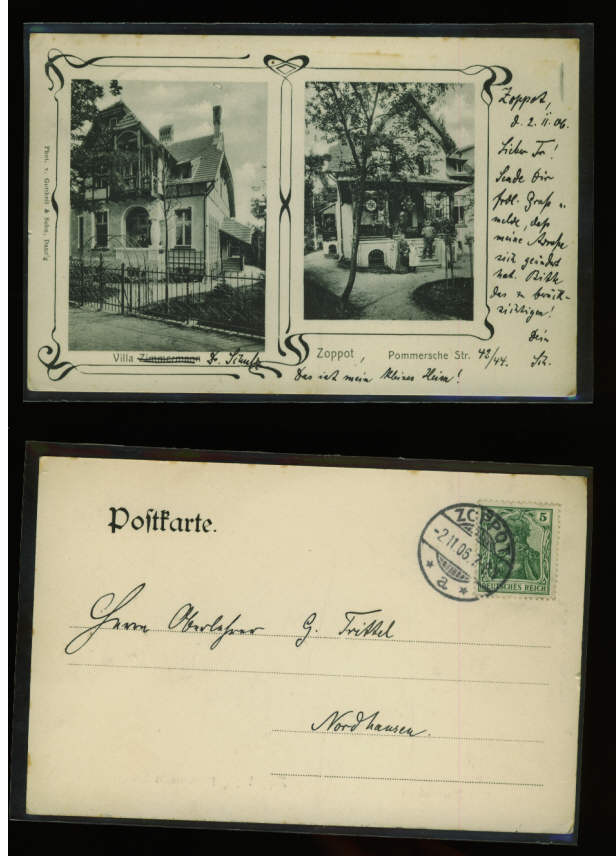 Phot. v. Gottheil & Sohn, Danzig
Zoppot,
d. 2. 11. 06.
Lieber Tr!
Sende Dir
frdl. Gruß u.
melde, daß
meine Adresse
sich geändert
hat. Bitte
das zu berück-
sichtigen!
Dein
Sch.
Villa Zimmermann Dr. Schulz
Zoppot, Pommersche Str. 43/44.
Das ist mein kleines Heim!
Postkarte.
ZOPPOT
-2.11.06.7
a
5
DEUTSCHES REICH
Herrn Oberlehrer G. Trittel
Nordhausen.